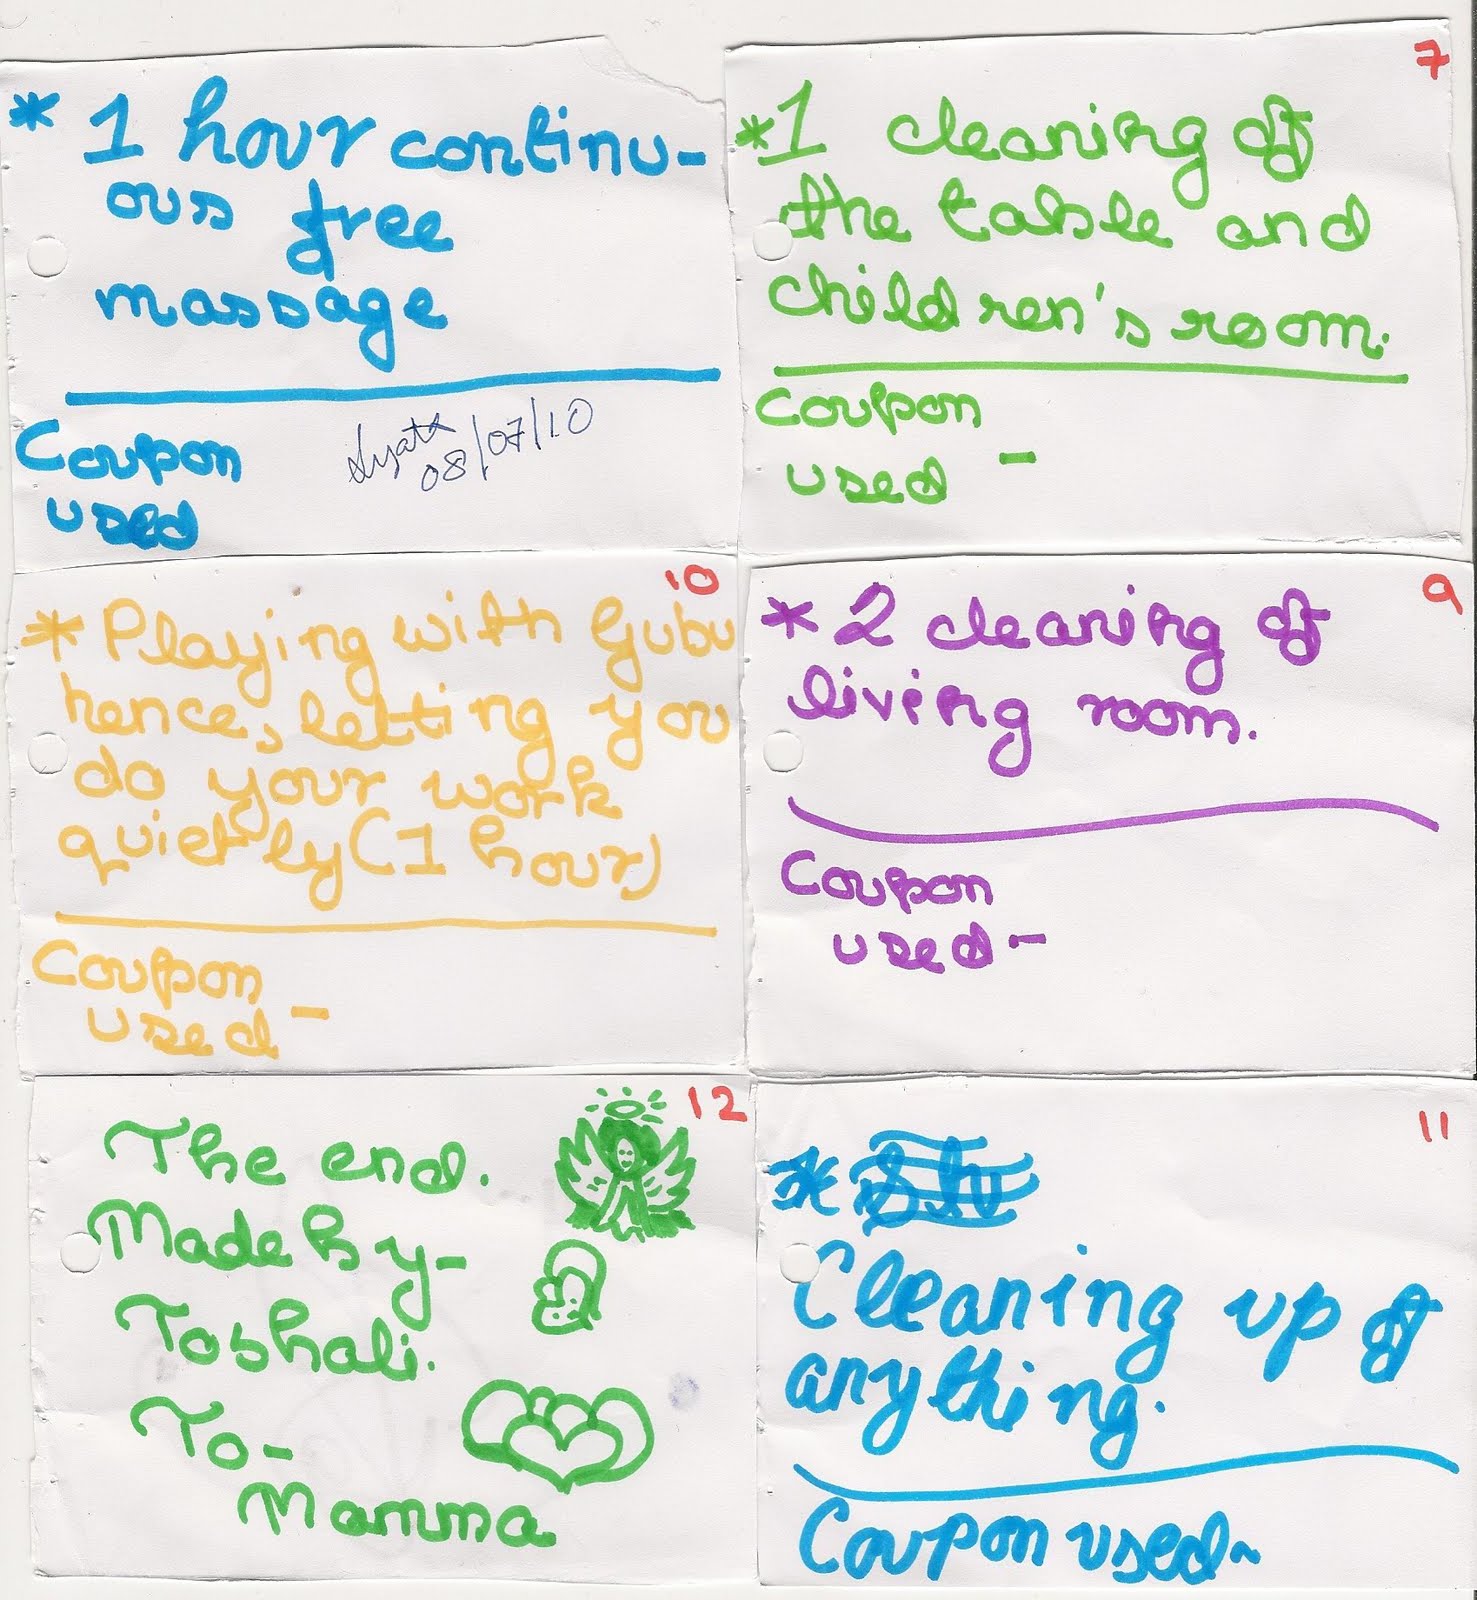 * 1 hour continu-
ous free
massage
Coupon
used
08/07/10
7
*1 cleaning of
the table and
children's room.
Coupon
used -
10
* Playing with Gubu
hence, letting you
do your work
quietly (1 hour)
Coupon
used -
9
* 2 cleaning of
living room.
Coupon
used -
12
The end.
Made by-
Toshali.
To-
Mamma
11
*
Cleaning up of
anything.
Coupon used~